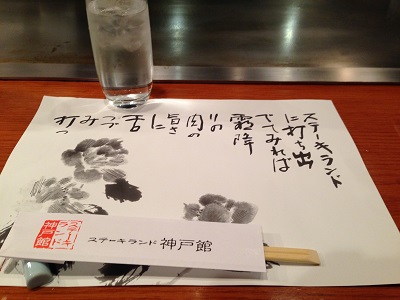 ステーキランド
に打ち出
でてみれば
霜降
りの
肉の
旨さ
に
舌
つづ
み
打つ
ステーキ
ランド
神戸館
ステーキランド 神戸館